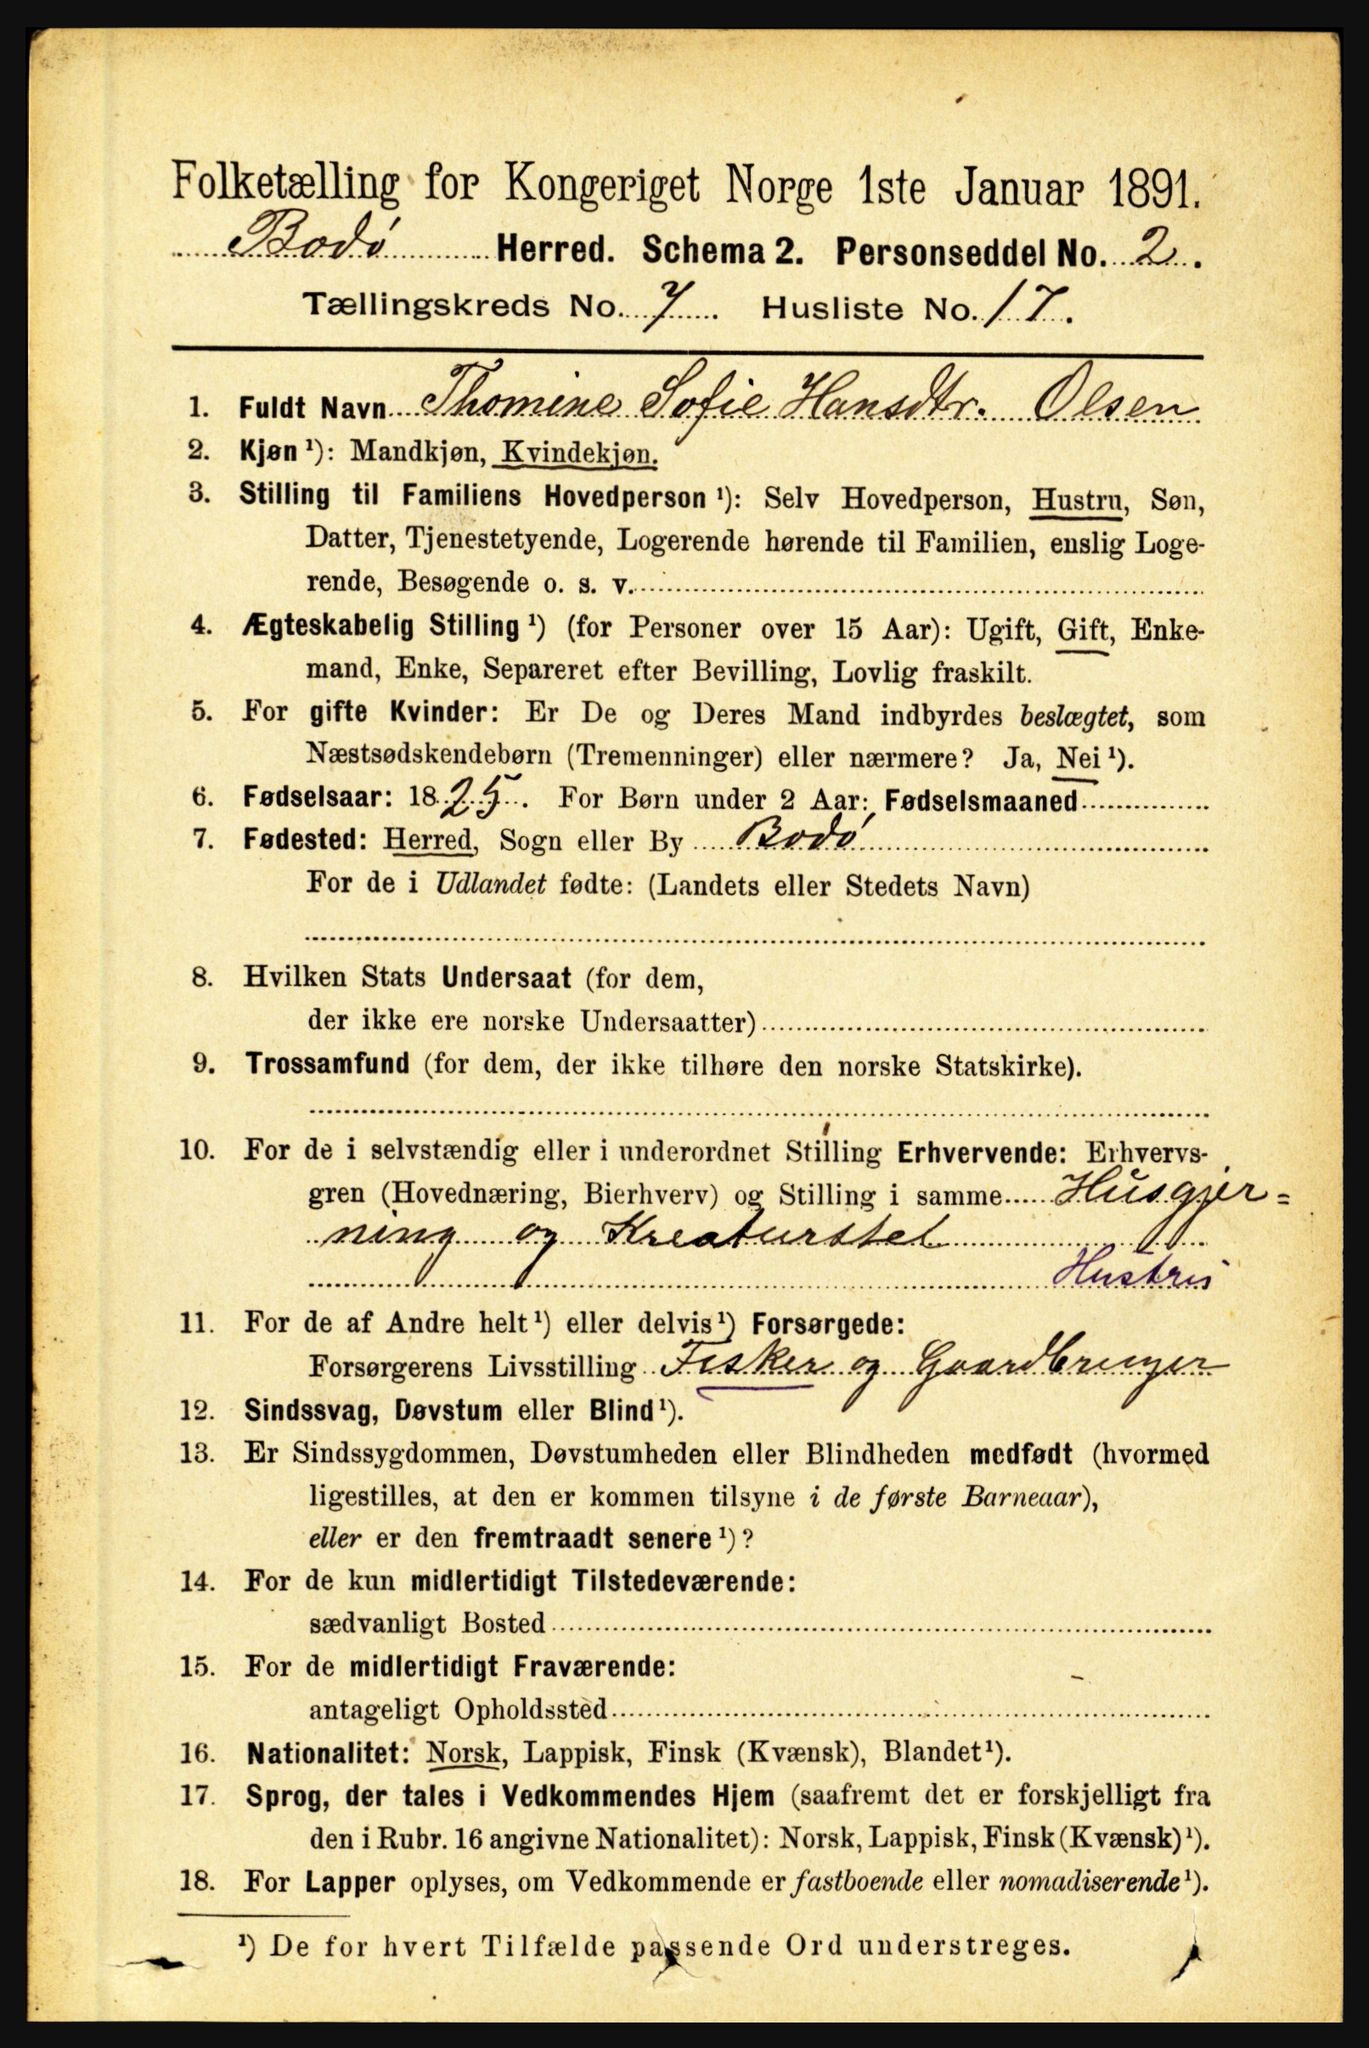 Folketælling for Kongeriget Norge 1ste Januar 1891.
Bodø Herred. Schema 2. Personseddel No. 2.
Tællingskreds No. 7. Husliste No. 17.
1. Fuldt Navn Thomine Sofie Hansdtr. Olsen
2. Kjøn ¹): Mandkjøn, Kvindekjøn.
3. Stilling til Familiens Hovedperson ¹): Selv Hovedperson, Hustru, Søn,
Datter, Tjenestetyende, Logerende hørende til Familien, enslig Loge-
rende, Besøgende o. s. v.
4. Ægteskabelig Stilling ¹) (for Personer over 15 Aar): Ugift, Gift, Enke-
mand, Enke, Separeret efter Bevilling, Lovlig fraskilt.
5. For gifte Kvinder: Er De og Deres Mand indbyrdes beslægtet, som
Næstsødskendebørn (Tremenninger) eller nærmere? Ja, Nei ¹).
6. Fødselsaar: 1825. For Børn under 2 Aar: Fødselsmaaned
7. Fødested: Herred, Sogn eller By Bodø
For de i Udlandet fødte: (Landets eller Stedets Navn)
8. Hvilken Stats Undersaat (for dem,
der ikke ere norske Undersaatter)
9. Trossamfund (for dem, der ikke tilhøre den norske Statskirke).
10. For de i selvstændig eller i underordnet Stilling Erhvervende: Erhvervs-
gren (Hovednæring, Bierhverv) og Stilling i samme Husgjer=
ning og Kreaturstel
Hustru
11. For de af Andre helt ¹) eller delvis ¹) Forsørgede:
Forsørgerens Livsstilling Fisker og Gaardbruger
12. Sindssvag, Døvstum eller Blind ¹).
13. Er Sindssygdommen, Døvstumheden eller Blindheden medfødt (hvormed
ligestilles, at den er kommen tilsyne i de første Barneaar),
eller er den fremtraadt senere ¹)?
14. For de kun midlertidigt Tilstedeværende:
sædvanligt Bosted
15. For de midlertidigt Fraværende:
antageligt Opholdssted
16. Nationalitet: Norsk, Lappisk, Finsk (Kvænsk), Blandet ¹).
17. Sprog, der tales i Vedkommendes Hjem (saafremt det er forskjelligt fra
den i Rubr. 16 angivne Nationalitet): Norsk, Lappisk, Finsk (Kvænsk) ¹).
18. For Lapper oplyses, om Vedkommende er fastboende eller nomadiserende ¹).
¹) De for hvert Tilfælde passende Ord understreges.